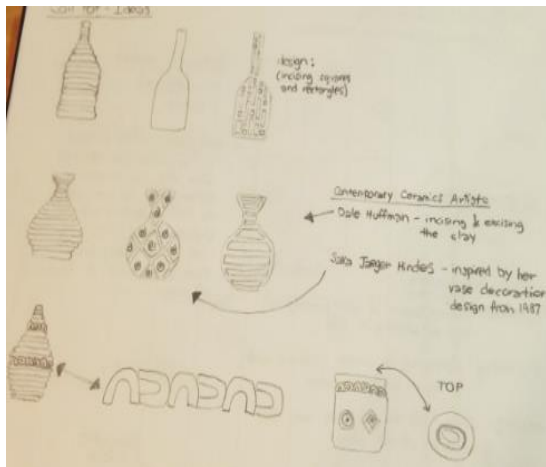 Coil Pot - Ideas
design:
(incising squares
and rectangles)
Contemporary Ceramics Artists
Dale Huffman - incising & excising
the clay
Jaeger - inspired by her
vase decoration
design from 1987
TOP